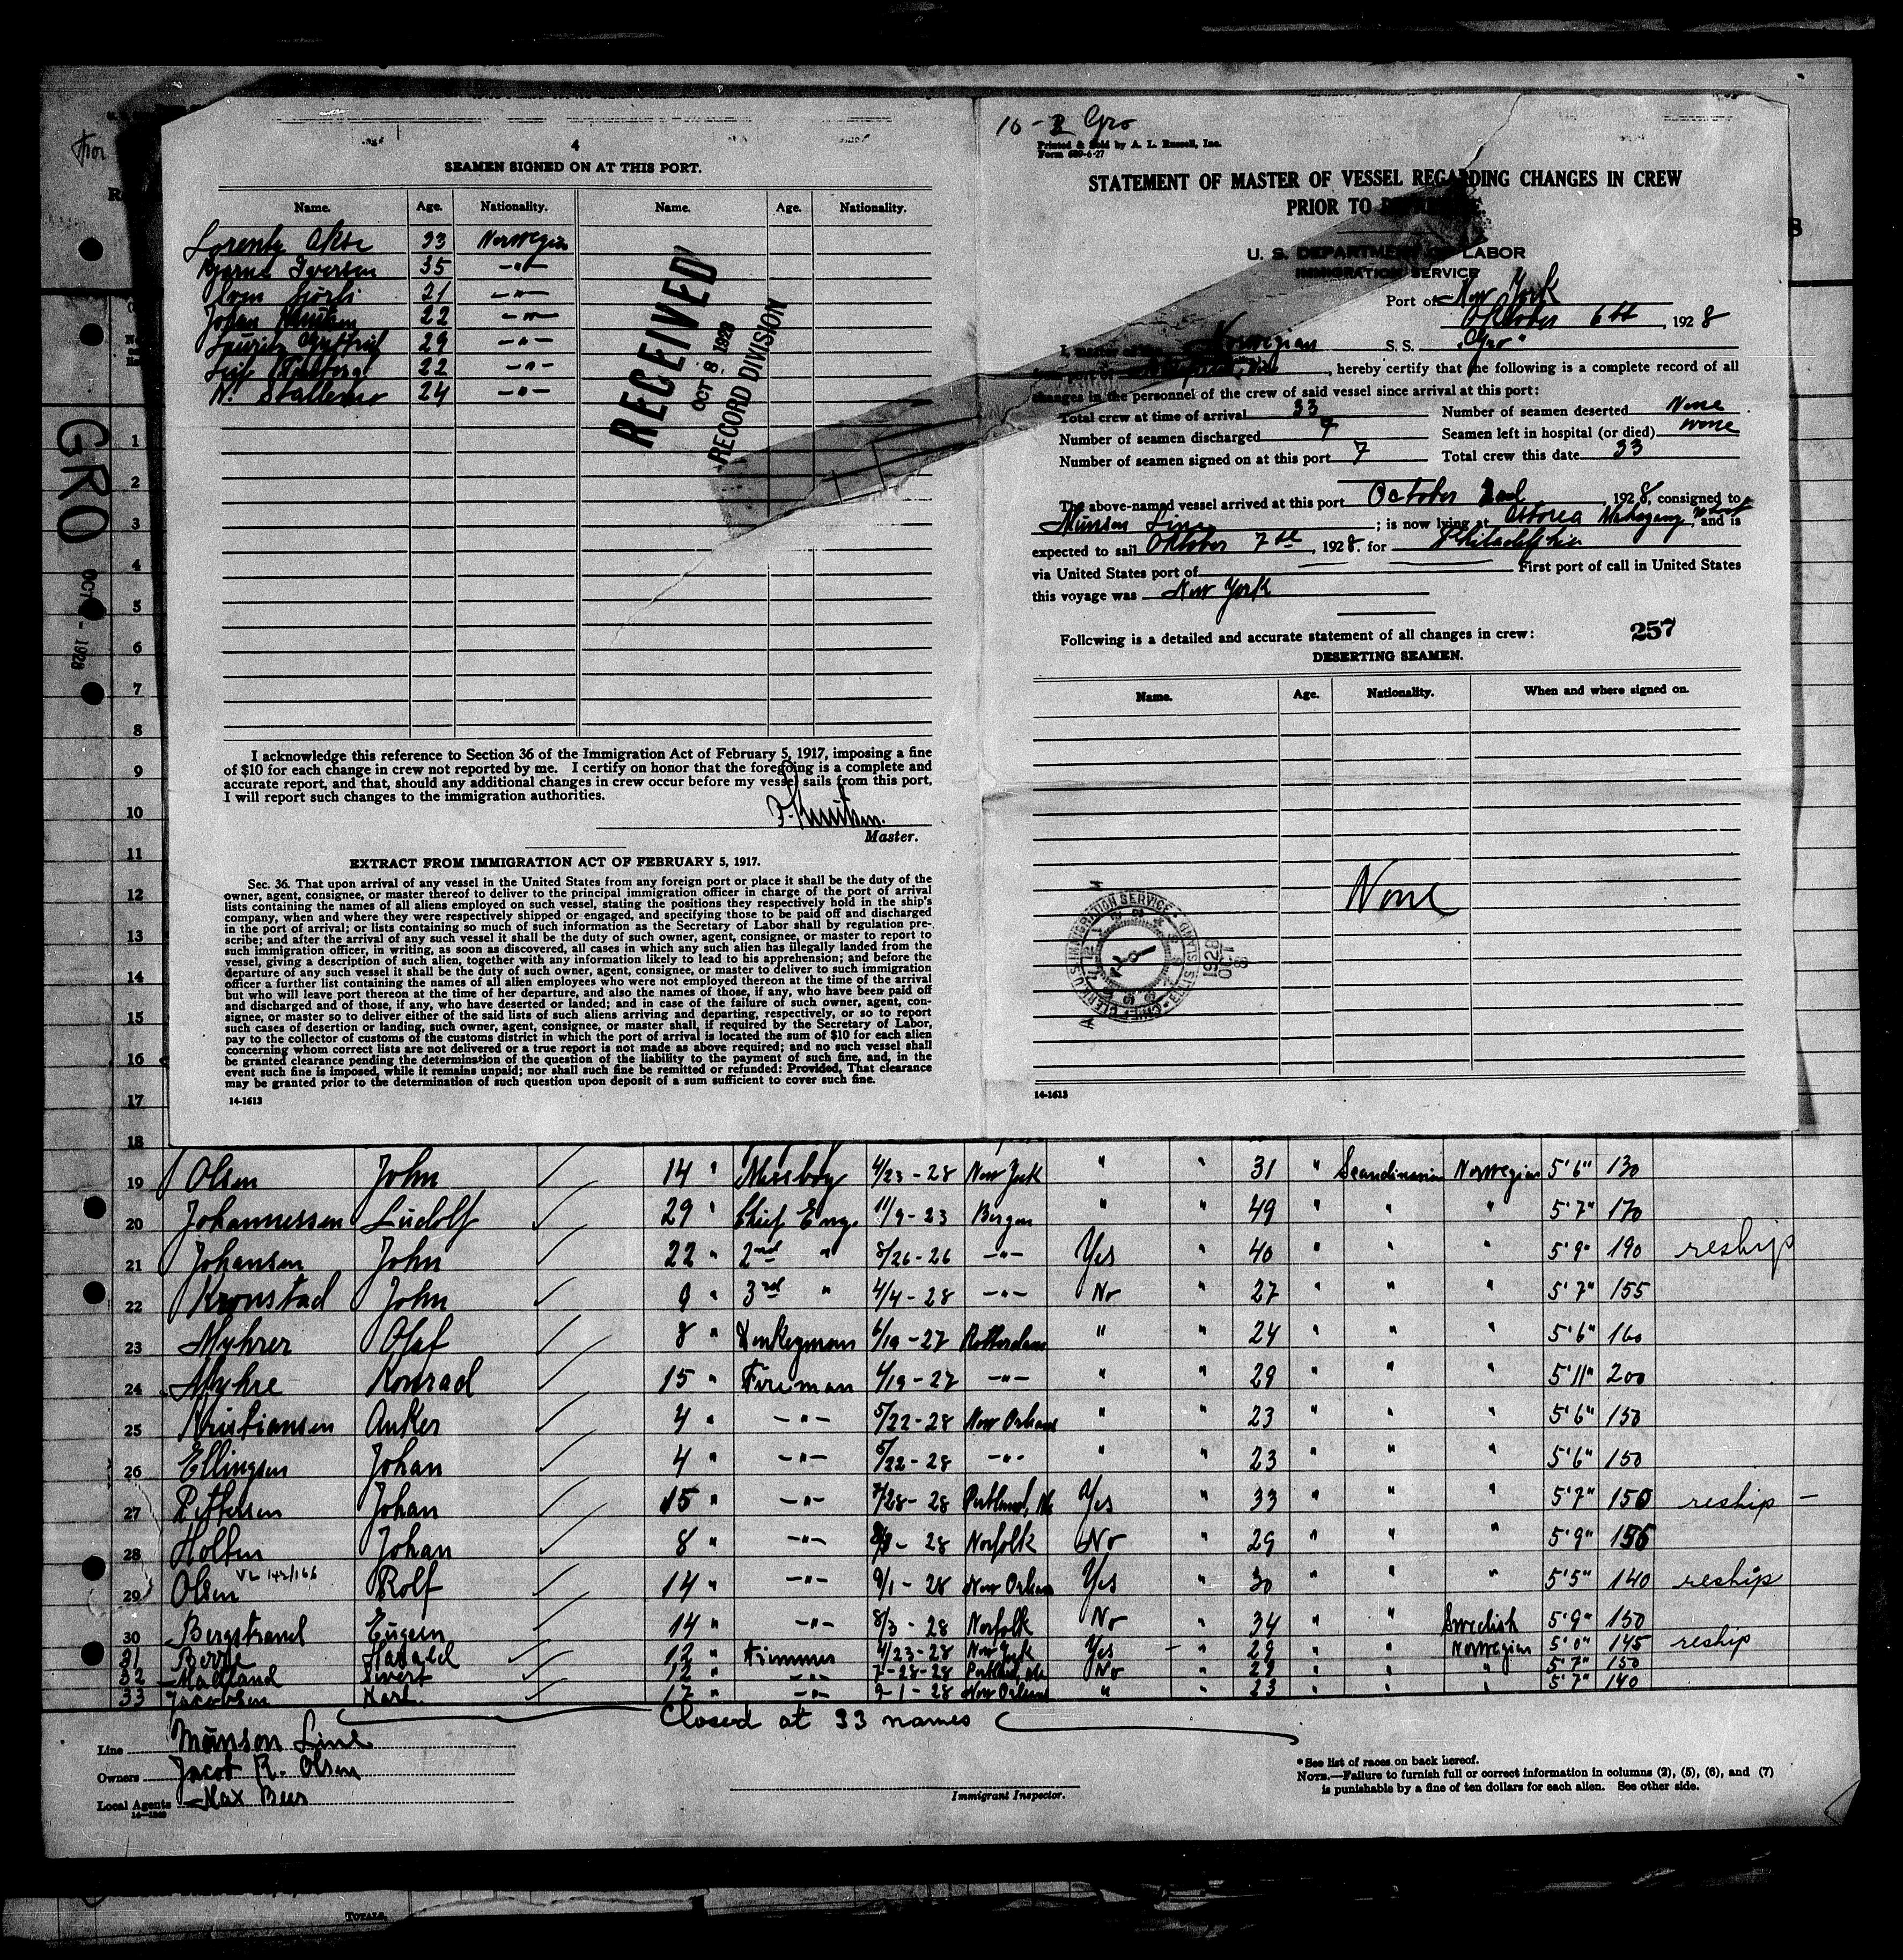 4
SEAMEN SIGNED ON AT THIS PORT.
Name. Age. Nationality. Name. Age. Nationality.
33 Norwegian
Bjarne Iversen 35 -"-
21 -"-
Johan Knutsen 22 -"-
29 -"-
22 -"-
24 -"-
RECEIVED
OCT 8 1928
RECORD DIVISION
I acknowledge this reference to Section 36 of the Immigration Act of February 5, 1917, imposing a fine
of $10 for each change in crew not reported by me. I certify on honor that the foregoing is a complete and
accurate report, and that, should any additional changes in crew occur before my vessel sails from this port,
I will report such changes to the immigration authorities.
Master.
EXTRACT FROM IMMIGRATION ACT OF FEBRUARY 5, 1917.
Sec. 36. That upon arrival of any vessel in the United States from any foreign port or place it shall be the duty of the
owner, agent, consignee, or master thereof to deliver to the principal immigration officer in charge of the port of arrival
lists containing the names of all aliens employed on such vessel, stating the positions they respectively hold in the ship's
company, when and where they were respectively shipped or engaged, and specifying those to be paid off and discharged
in the port of arrival; or lists containing so much of such information as the Secretary of Labor shall by regulation pre-
scribe; and after the arrival of any such vessel it shall be the duty of such owner, agent, consignee, or master to report to
such immigration officer, in writing, as soon as discovered, all cases in which any such alien has illegally landed from the
vessel, giving a description of such alien, together with any information likely to lead to his apprehension; and before the
departure of any such vessel it shall be the duty of such owner, agent, consignee, or master to deliver to such immigration
officer a further list containing the names of all alien employees who were not employed thereon at the time of the arrival
but who will leave port thereon at the time of her departure, and also the names of those, if any, who have been paid off
and discharged and of those, if any, who have deserted or landed; and in case of the failure of such owner, agent, con-
signee, or master so to deliver either of the said lists of such aliens arriving and departing, respectively, or so to report
such cases of desertion or landing, such owner, agent, consignee, or master shall, if required by the Secretary of Labor,
pay to the collector of customs of the customs district in which the port of arrival is located the sum of $10 for each alien
concerning whom correct lists are not delivered or a true report is not made as above required; and no such vessel shall
be granted clearance pending the determination of the question of the liability to the payment of such fine, and, in the
event such fine is imposed, while it remains unpaid; nor shall such fine be remitted or refunded: Provided, That clearance
may be granted prior to the determination of such question upon deposit of a sum sufficient to cover such fine.
14-1613
Gro
Printed & Sold by A. L. Russell, Inc.
STATEMENT OF MASTER OF VESSEL REGARDING CHANGES IN CREW
PRIOR TO
U. S. DEPARTMENT OF LABOR
IMMIGRATION SERVICE
Port of New York
Oktober 6th, 1928
I, master of the Norwegian S. S. "Gro"
, hereby certify that the following is a complete record of all
changes in the personnel of the crew of said vessel since arrival at this port:
Total crew at time of arrival 33 Number of seamen deserted None
Number of seamen discharged 7 Seamen left in hospital (or died) none
Number of seamen signed on at this port 7 Total crew this date 33
The above-named vessel arrived at this port October 2nd, 1928, consigned to
Munson Line; is now lying at Astoria Mahogany Wharf, and is
expected to sail Oktober 7th, 1928, for Philadelphia
via United States port of First port of call in United States
this voyage was New York
Following is a detailed and accurate statement of all changes in crew: 257
DESERTING SEAMEN.
Name. Age. Nationality. When and where signed on.
None
1928 OCT 8
14-1613
GRO
1928
1
2
3
4
5
6
7
8
9
10
11
12
13
14
15
16
17
18
19 Olsen John 14 " Messboy 4/23-28 New York " " 31 " Scandinavian Norwegian 5'6" 130
20 Johannessen Ludolf 29 " Chief Eng. 11/9-23 Bergen " " 49 " " " 5'7" 170
21 Johansen John 22 " 2nd " 8/26-26 -"- Yes " 40 " " " 5'9" 190 reship
22 Kronstad John 9 " 3rd " 4/4-28 -"- No " 27 " " " 5'7" 155
23 Myhrer Olaf 8 " Donkeyman 6/19-27 Rotterdam " " 24 " " " 5'6" 160
24 Myhre Konrad 15 " Fireman 6/19-27 -"- " " 29 " " " 5'11" 200
25 Kristiansen Anker 4 " -"- 5/22-28 New Orleans " " 23 " " " 5'6" 150
26 Ellingsen Johan 4 " -"- 5/22-28 -"- " " 23 " " " 5'6" 150
27 Pettersen Johan 15 " -"- 7/28-28 Portland, Me Yes " 33 " " " 5'7" 150 reship -
28 Holten Johan 8 " -"- 28 Norfolk No " 29 " " " 5'9" 156
29 Olsen Rolf 14 " -"- 9/1-28 New Orleans Yes " 30 " " " 5'5" 140 reship
30 Bergstrand Eugen 14 " -"- 8/3-28 Norfolk No " 34 " " Swedish 5'9" 150
31 Harald 12 " Trimmer 4/23-28 New York Yes - " 29 " " Norwegian 5'0" 145 reship
32 Madland Sivert 12 " -"- 7-28-28 Portland, Me No " 29 " " " 5'7" 150
33 Jacobsen Karl 17 " -"- 9-1-28 New Orleans " " 23 " " " 5'7" 140
Closed at 33 names
Line Munson Line
Owners Jacob R. Olsen
Local Agents
Immigrant Inspector.
* See list of races on back hereof.
NOTE.—Failure to furnish full or correct information in columns (2), (5), (6), and (7)
is punishable by a fine of ten dollars for each alien. See other side.
TOTALS